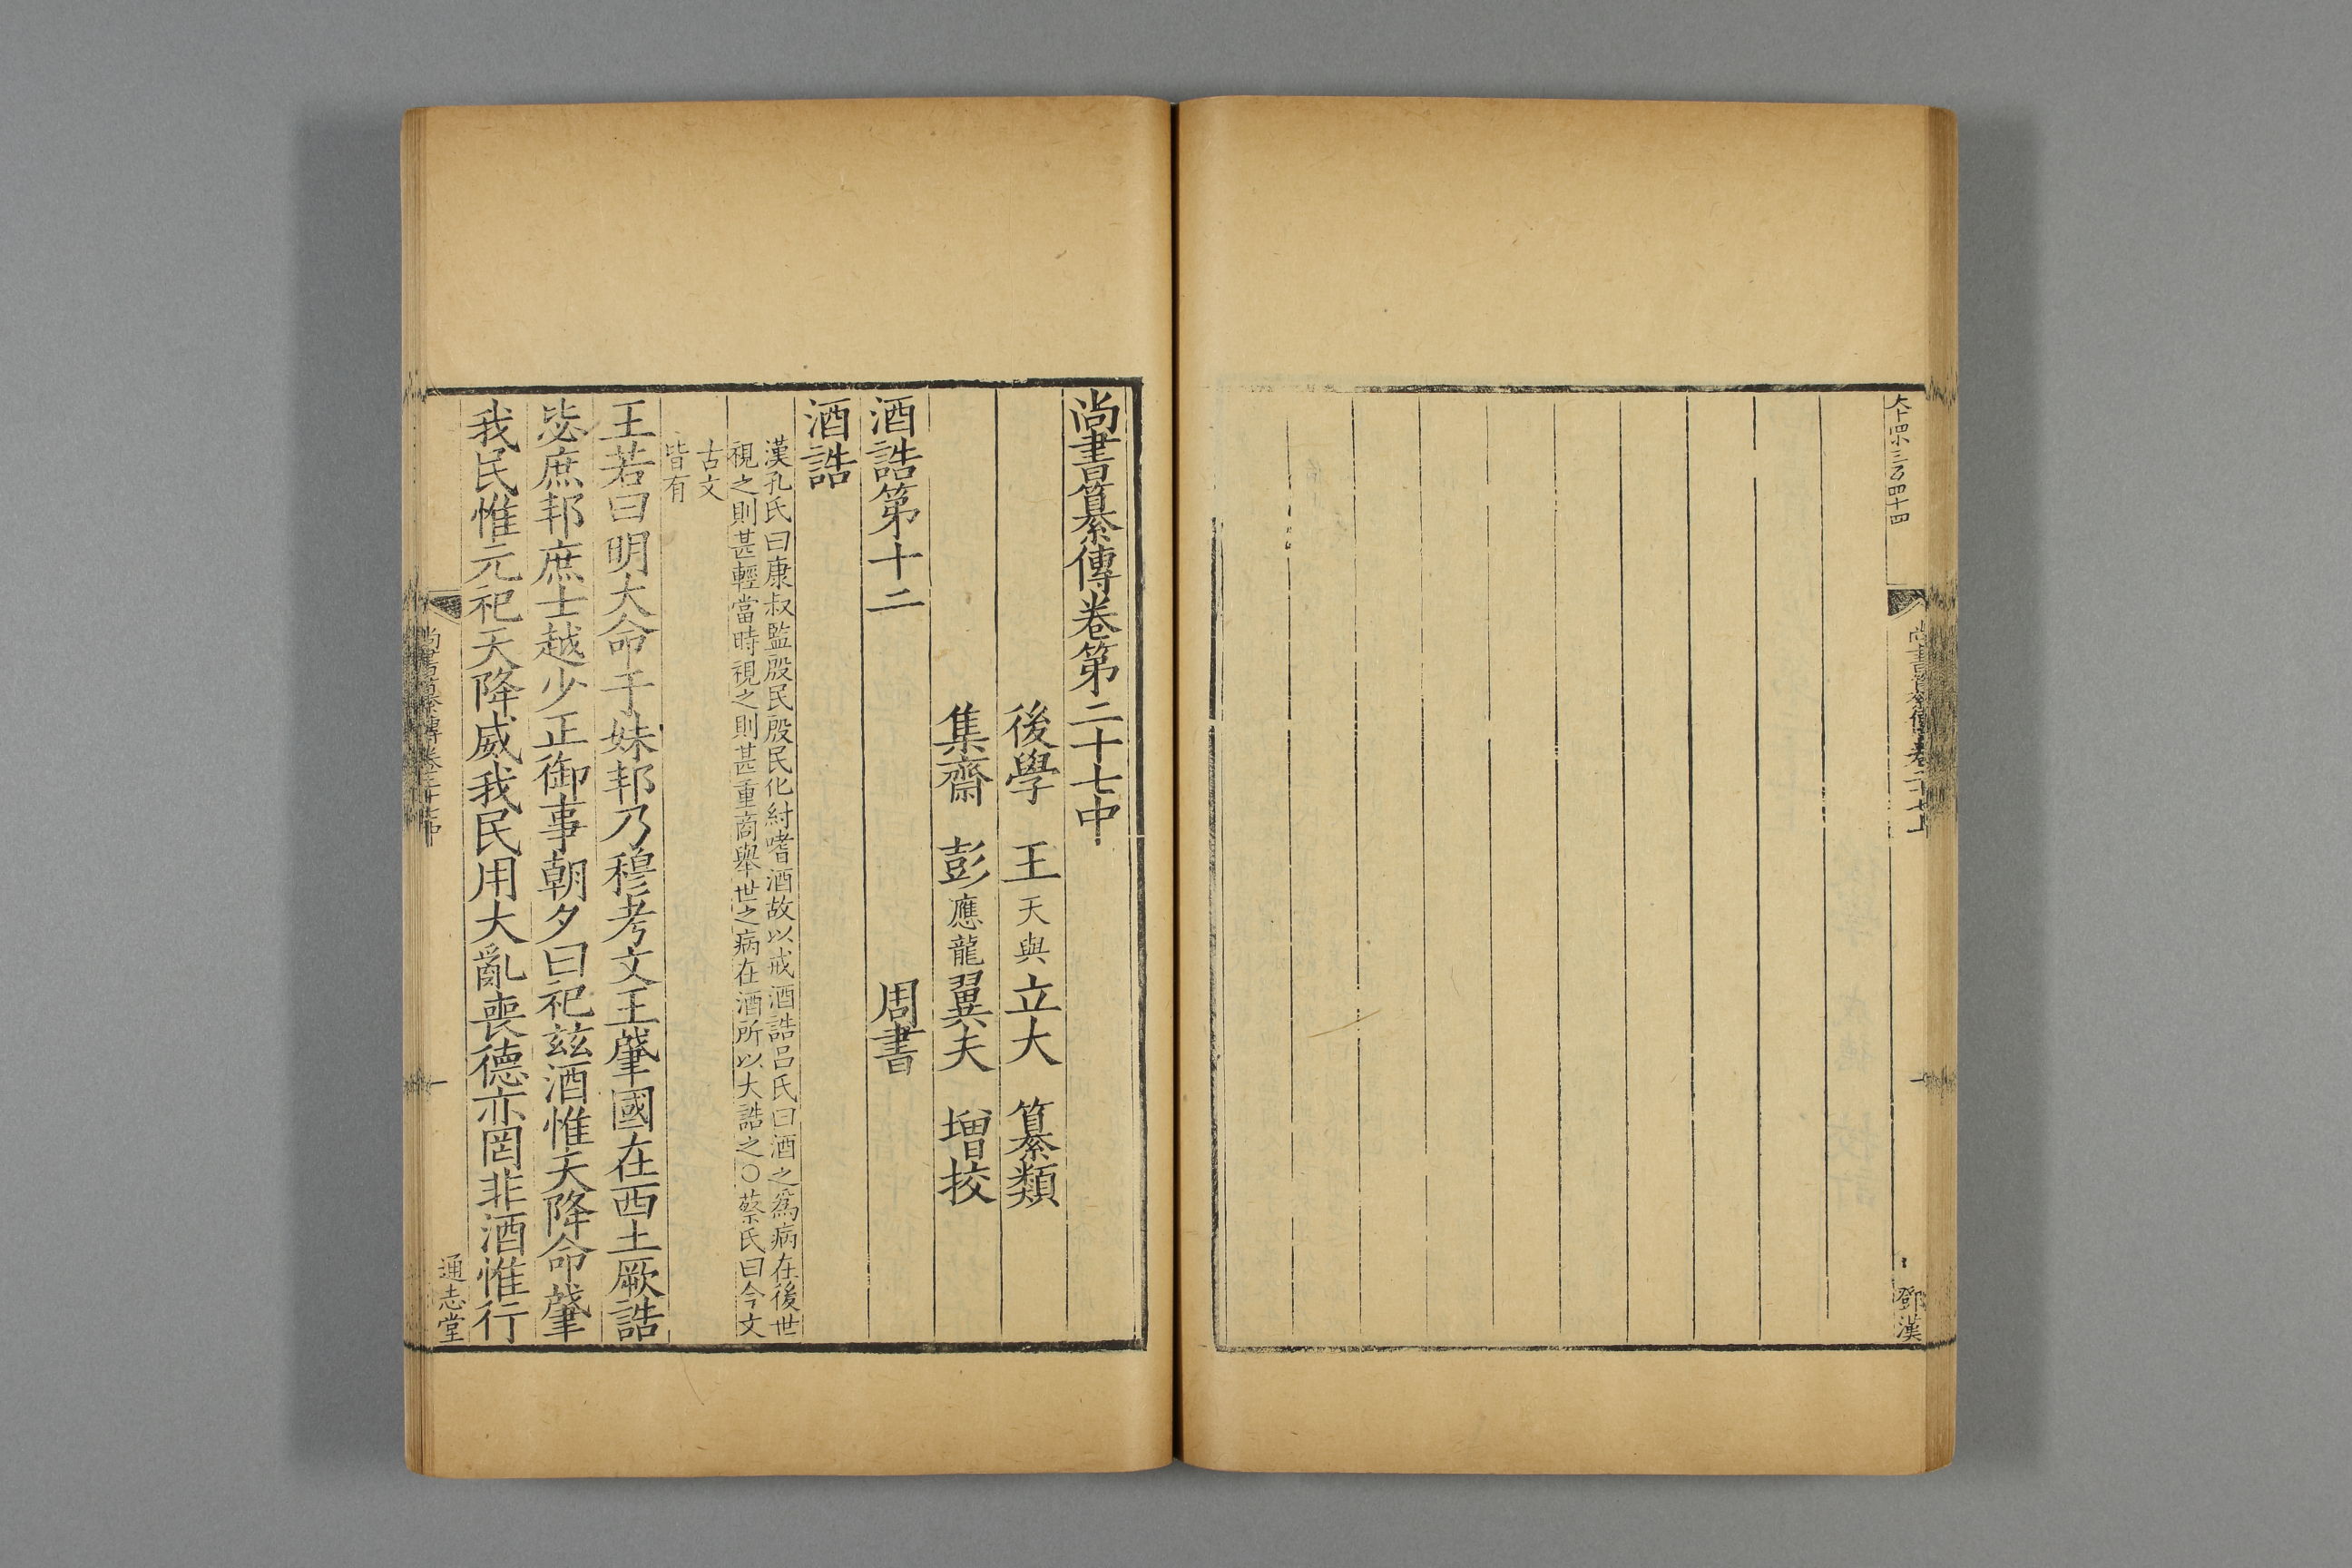 大十四小三百四十四
尚書纂傳卷二十七上
鄧漢
尚書纂傳卷第二十七中
後學 王天與立大 纂類
集齋 彭應龍翼夫 增挍
酒誥第十二 周書
酒誥
漢孔氏曰康叔監殷民殷民化紂嗜酒故以戒酒誥吕氏曰酒之爲病在後世
視之則甚輕當時視之則甚重商舉世之病在酒所以大誥之○蔡氏曰今文
古文
皆有
王若曰明大命于妹邦乃穆考文王肇國在西土厥誥
毖庶邦庶士越少正御事朝夕曰祀兹酒惟天降命肇
我民惟元祀天降威我民用大亂喪德亦罔非酒惟行
尚書纂傳卷二十七中
通志堂